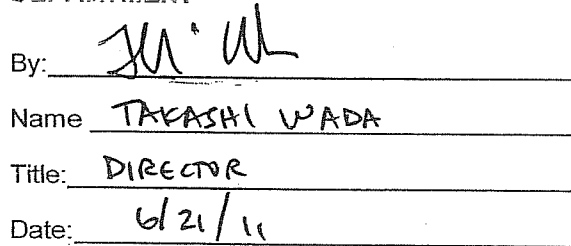 By:
Name TAKASHI WADA
Title: DIRECTOR
Date: 6/21/11